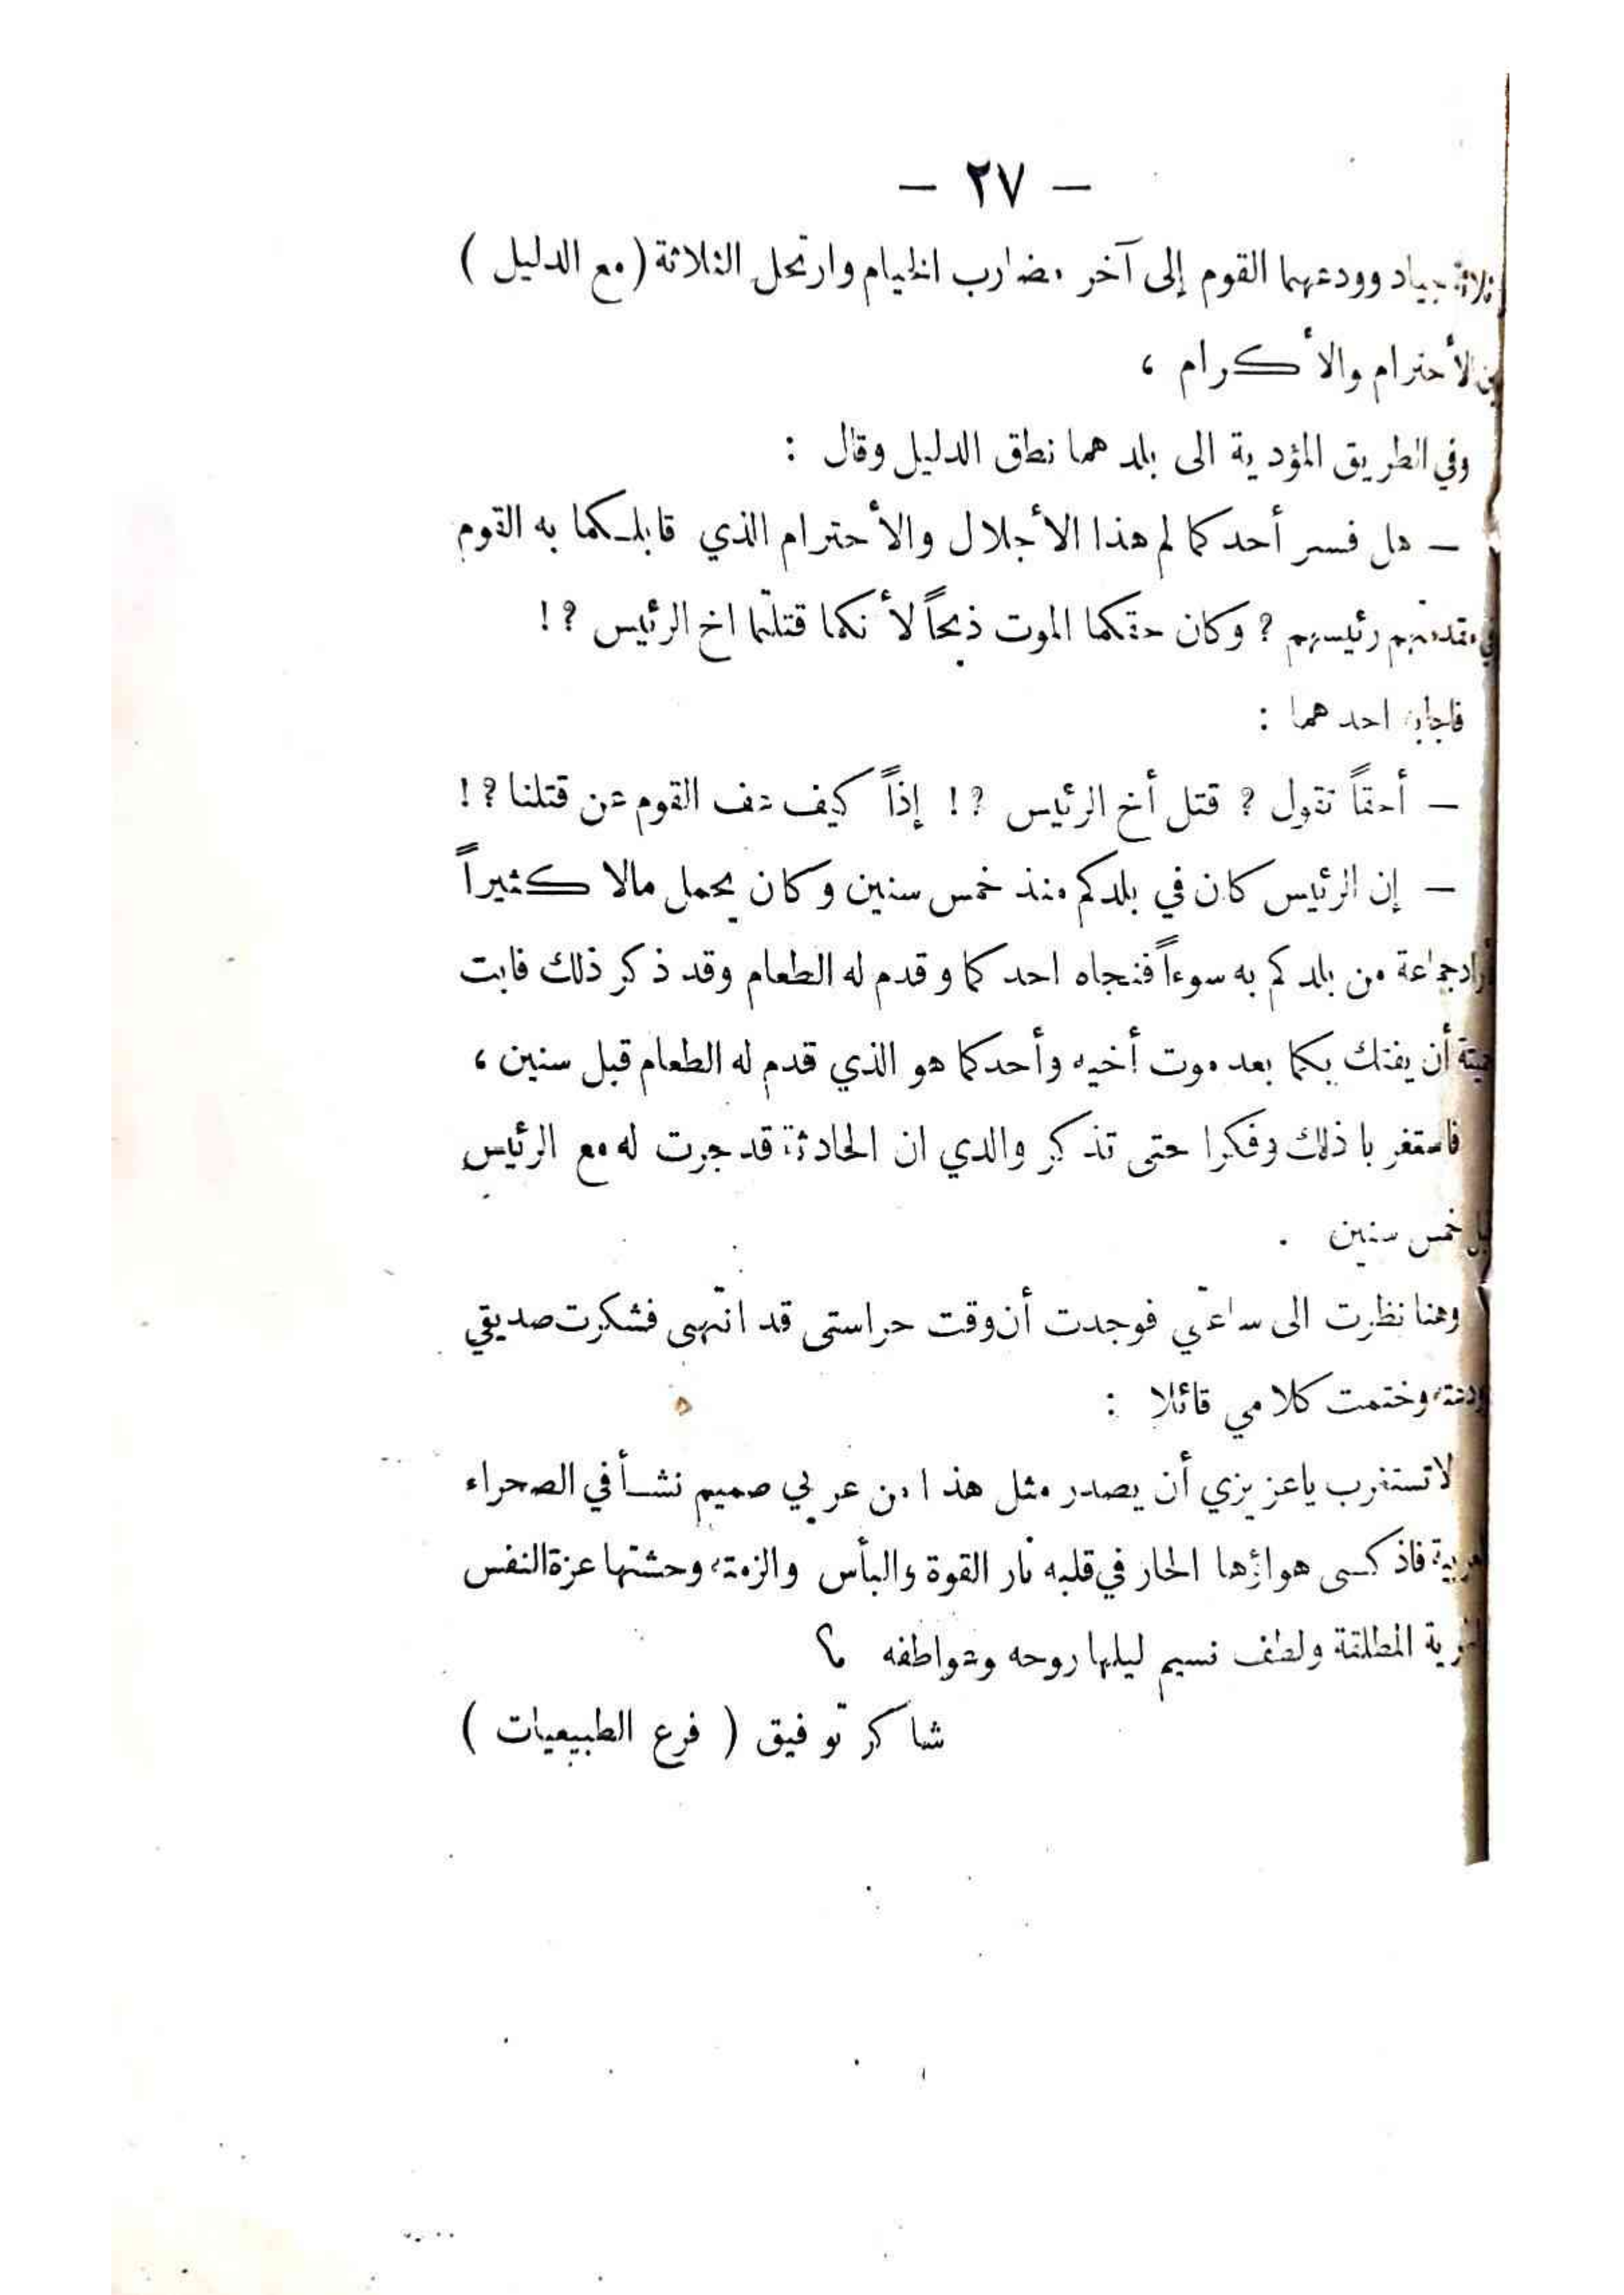 — ٢٧ —
ثلاثة جياد وودعهما القوم إلى آخر مضارب الخيام وارتحل الثلاثة (مع الدليل)
الأحترام والأكرام ،
وفي الطريق المؤدية الى بلدهما نطق الدليل وقال :
— هل فسر أحدكما لم هذا الأجلال والأحترام الذي قابلكما به القوم
في مقدمتهم رئيسهم ? وكان حقكما الموت ذبحاً لأنكما قتلتما اخ الرئيس ?!
فاجابه احدهما :
— أحقاً تقول ? قتل أخ الرئيس ?! إذاً كيف عف القوم عن قتلنا ?!
— إن الرئيس كان في بلدكم منذ خمس سنين وكان يحمل مالا كثيراً
أراد جماعة من بلدكم به سوءاً فنجاه احدكما وقدم له الطعام وقد ذكر ذلك فابت
أن يفتك بكما بعد موت أخيه وأحدكما هو الذي قدم له الطعام قبل سنين ،
فاستغربا ذلك وفكرا حتى تذكر والدي ان الحادثة قد جرت له مع الرئيس
خمس سنين .
وهنا نظرت الى ساعتي فوجدت أن وقت حراستي قد انتهى فشكرت صديقي
وختمت كلامي قائلا :
لا تستغرب ياعزيزي أن يصدر مثل هذا من عربي صميم نشأ في الصحراء
فاذكى هواؤها الحار في قلبه نار القوة والبأس والزمته وحشتها عزة النفس
المطلقة ولطف نسيم ليلها روحه وعواطفه ؟
شاكر توفيق ( فرع الطبيعيات )